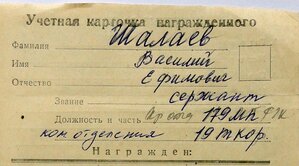 Учетная карточка награжденного
Фамилия Шалаев
Имя Василий
Отчество Ефимович
Звание сержант
Должность и часть 179 тк
ком. отделения 19 тк кор.
Награжден: